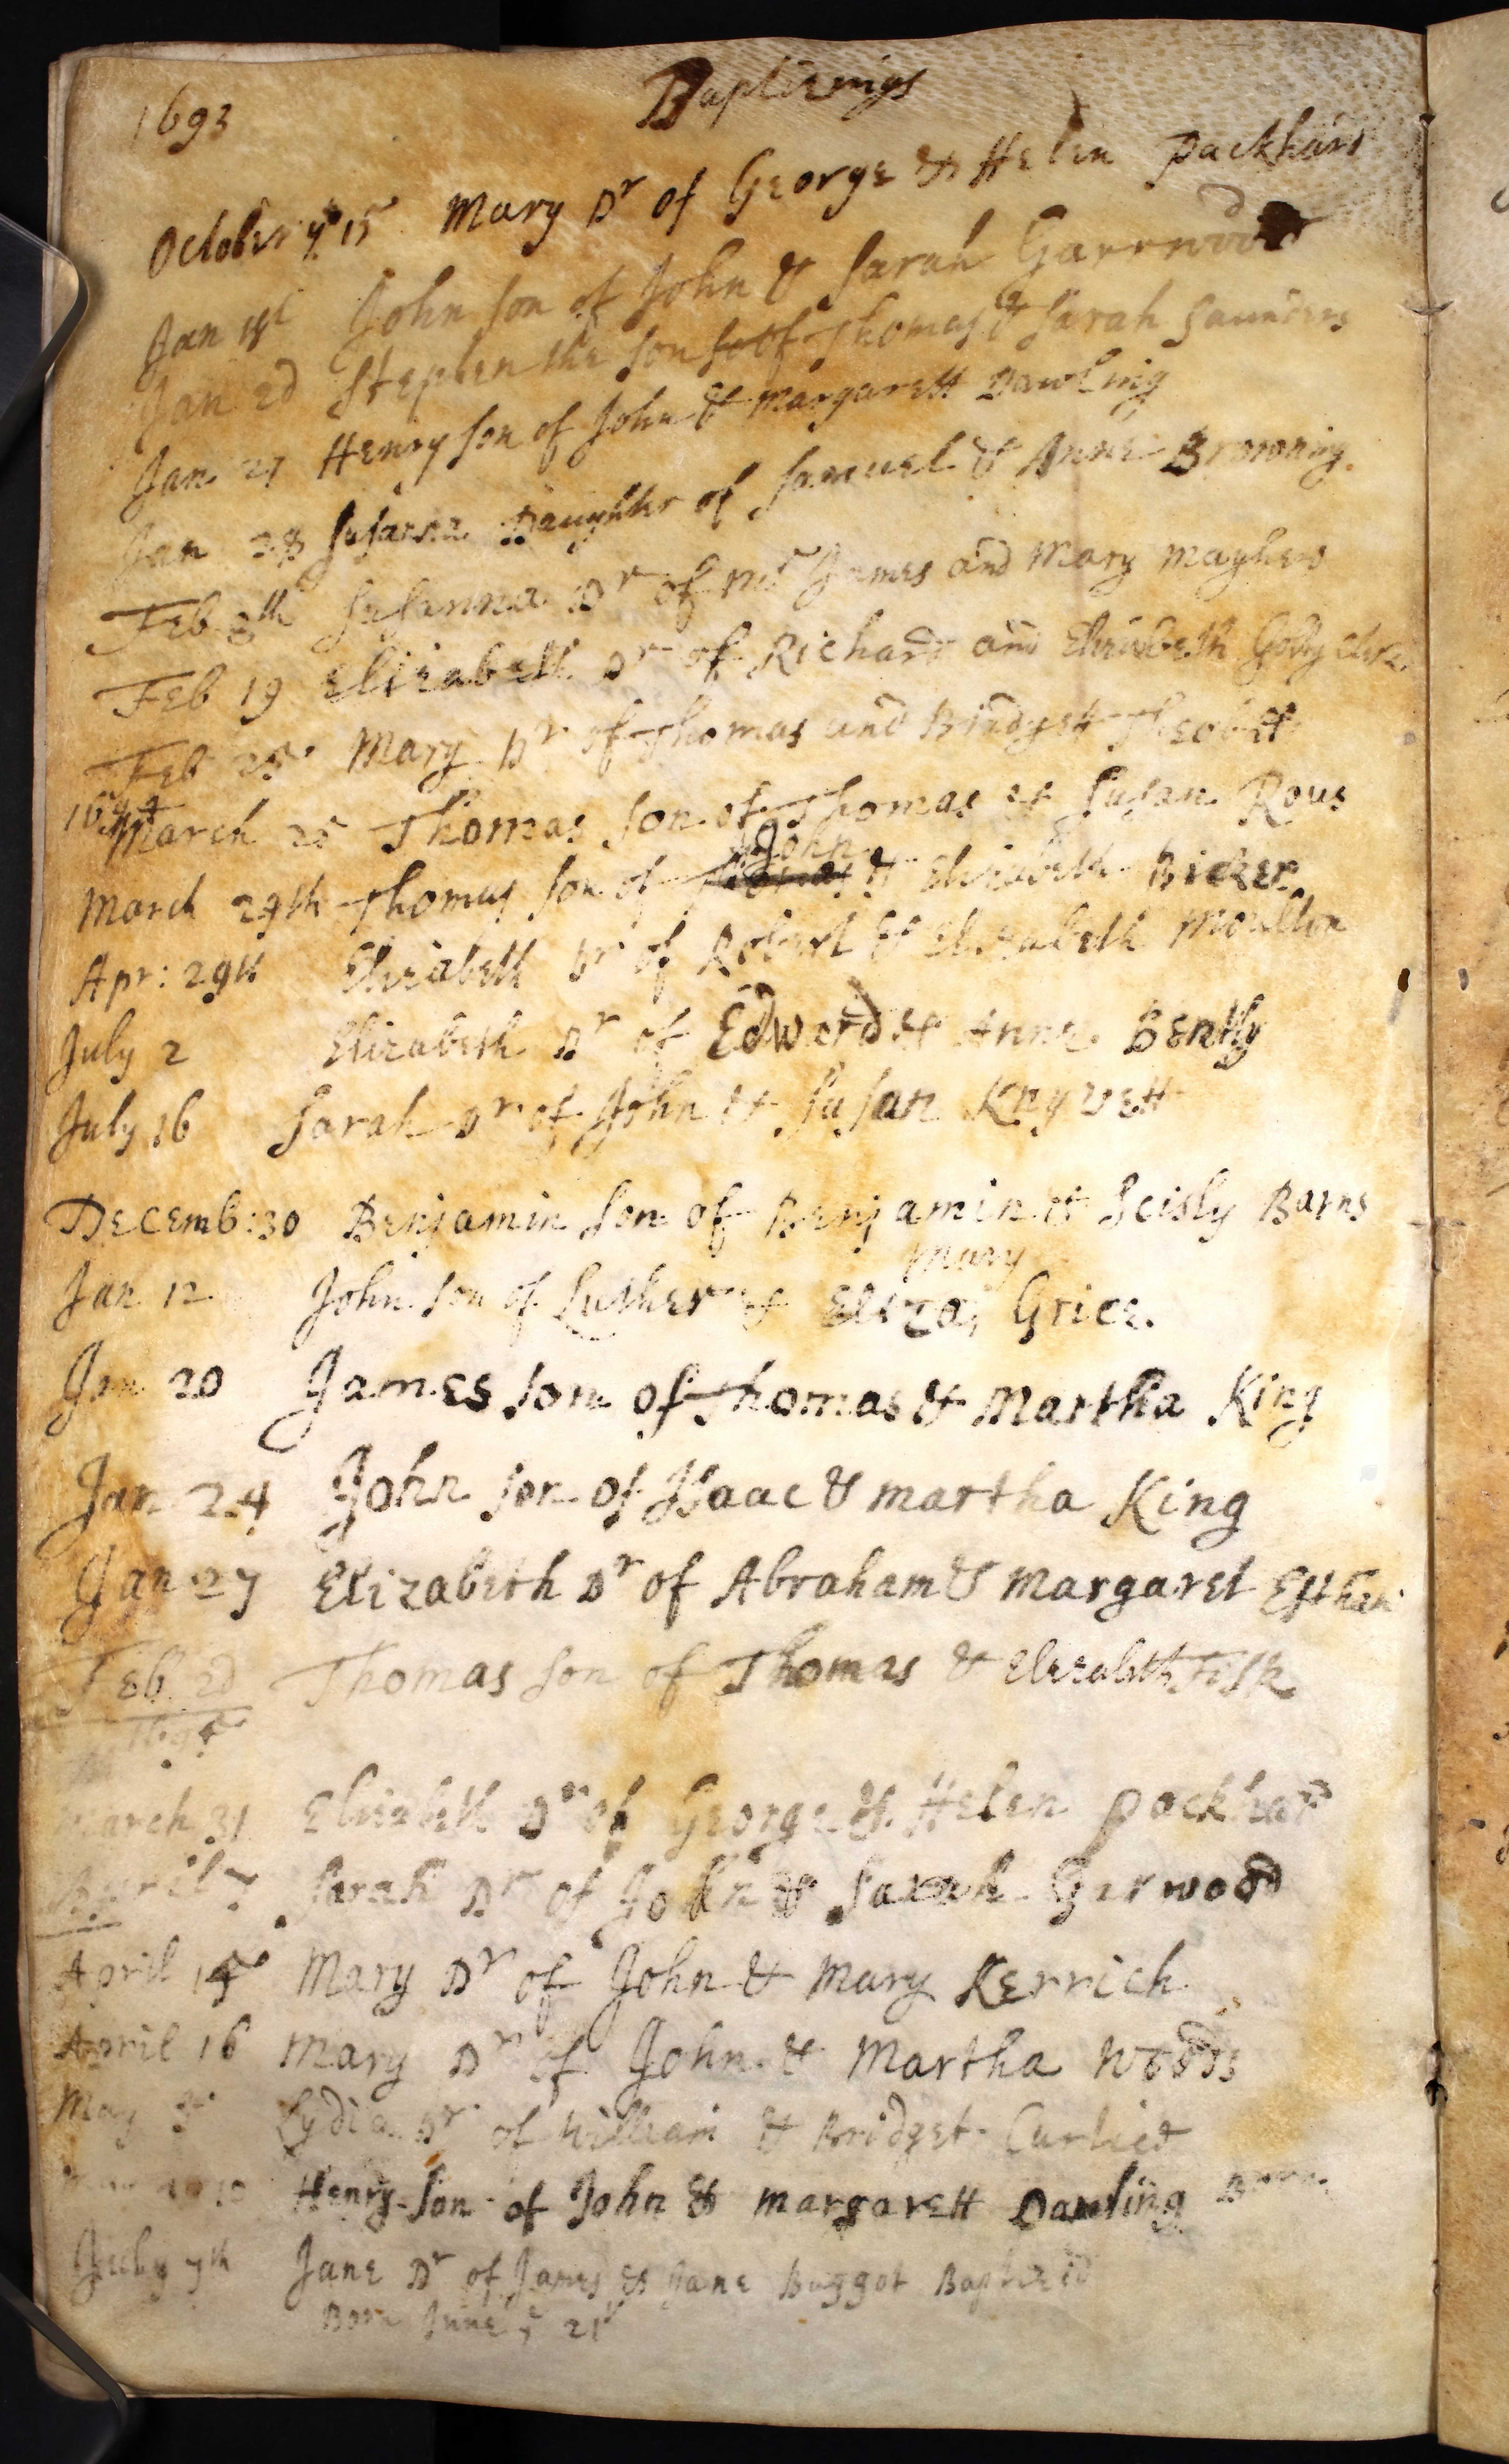 1693 Baptizings
October ye 15 Mary Dr of George & Helen Packhard
Jan 1st John son of John & Sarah Garrwood
Jan 2d Stephen the son of Thomas & Sarah Saunders
Jan 27 Henry son of John & Margarett Dawling
Jan 28 Susanna Daughter of Samuel & Anne Browning
Feb 8th Susanna Dr of Mr James and Mary Mayhew
Feb 19 Elizabeth Dr of Richard and Elizabeth
Feb 25 Mary Dr of Thomas and
1694
March 25 Thomas son of Thomas & Susan Rous
John
March 29th Thomas son of Thomas & Elizabeth Bicker
Apr: 29th Elizabeth Dr of Robert & Elizabeth Moulton
July 2 Elizabeth Dr of Edward & Anne Bently
July 16 Sarah Dr of John & Susan Knyvett
Decemb: 30 Benjamin son of Benjamin & Scisly Barns
Mary
Jan 12 John son of Luther & Eliza, Grice.
Jan 20 James son of Thomas & Martha King
Jan 24 John son of Isaac & Martha King
Jan 27 Elizabeth Dr of Abraham & Margaret
Feb 2d Thomas son of Thomas & Elizabeth Fisk
1695
March 31 Elizabeth Dr of George & Helen Packhard
April 7 Sarah Dr of John & Sarah Garwood
April 15 Mary Dr of John & Mary Kerrich
April 16 Mary Dr of John & Martha Woods
May Lydia Dr of William & Bridget
Henry son of John & Margarett Dawling
July 7th Jane Dr of James & Jane Buggot Baptized
Born June ye 21